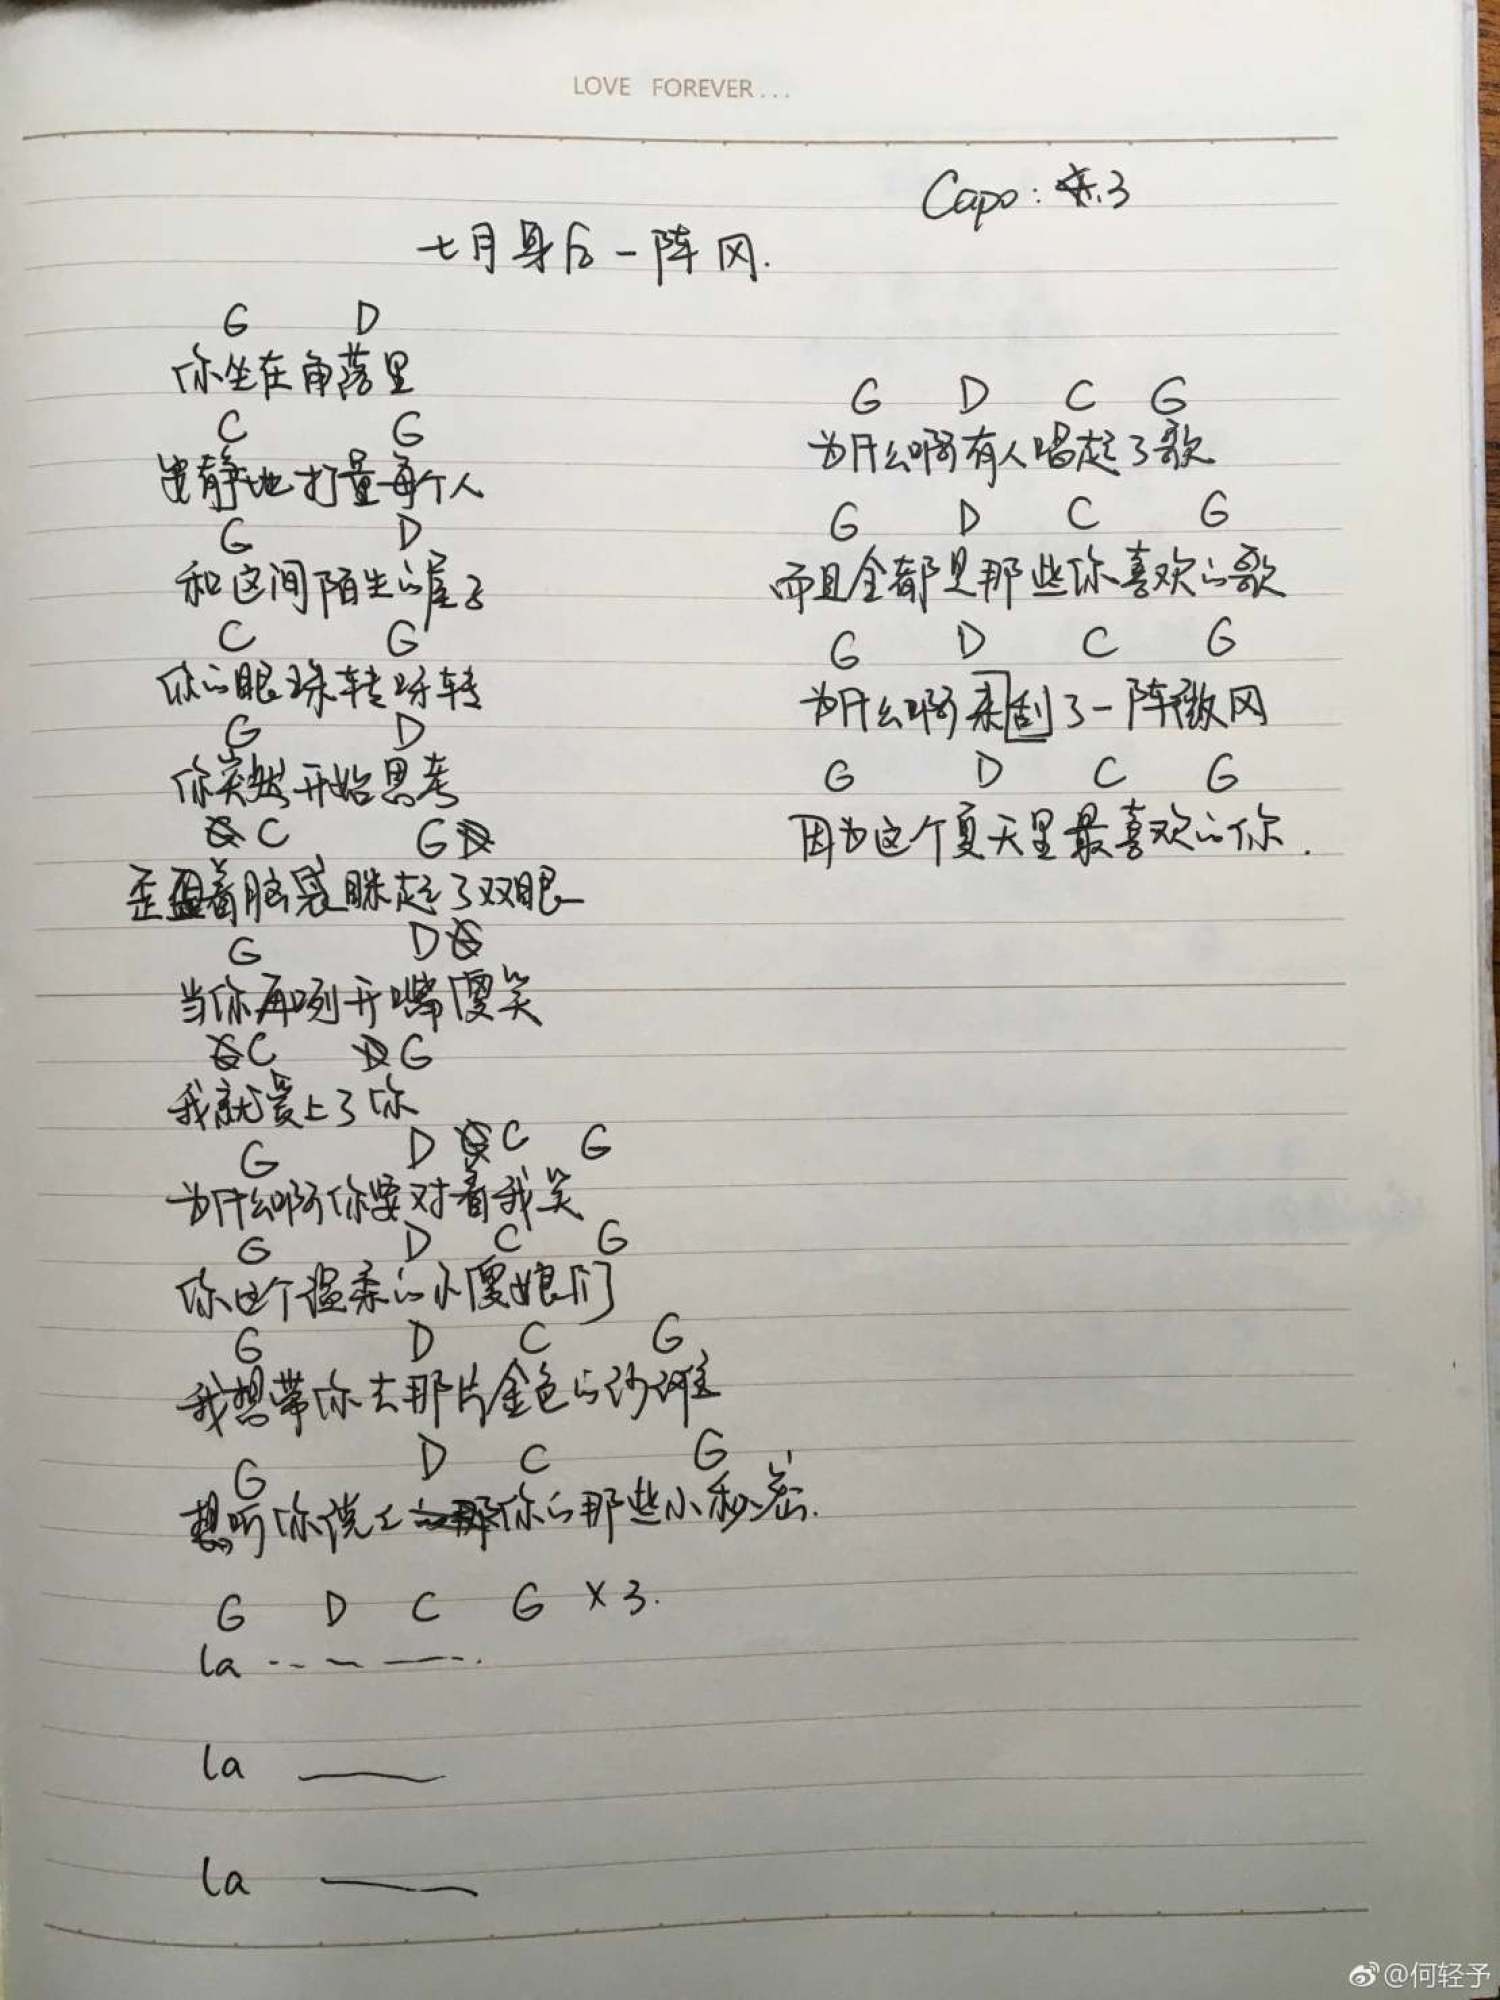 LOVE FOREVER...
Capo: 3
七月身后一阵风.
G D
你坐在角落里
C G
安静地打量每个人
G D
和这间陌生的屋子
C G
你的眼珠转呀转
G D
你突然开始思考
C G
歪着脑袋眯起了双眼
G D
当你再咧开嘴傻笑
C G
我就爱上了你
G D C G
为什么啊你要对着我笑
G D C G
你这个温柔的小傻娘们
G D C G
我想带你去那片金色的沙滩
G D C G
想听你说你的那些小秘密.
G D C G ×3.
la
la
la
G D C G
为什么啊有人唱起了歌
G D C G
而且全都是那些你喜欢的歌
G D C G
为什么啊刮来了一阵微风
G D C G
因为这个夏天里最喜欢的你.
@何轻予